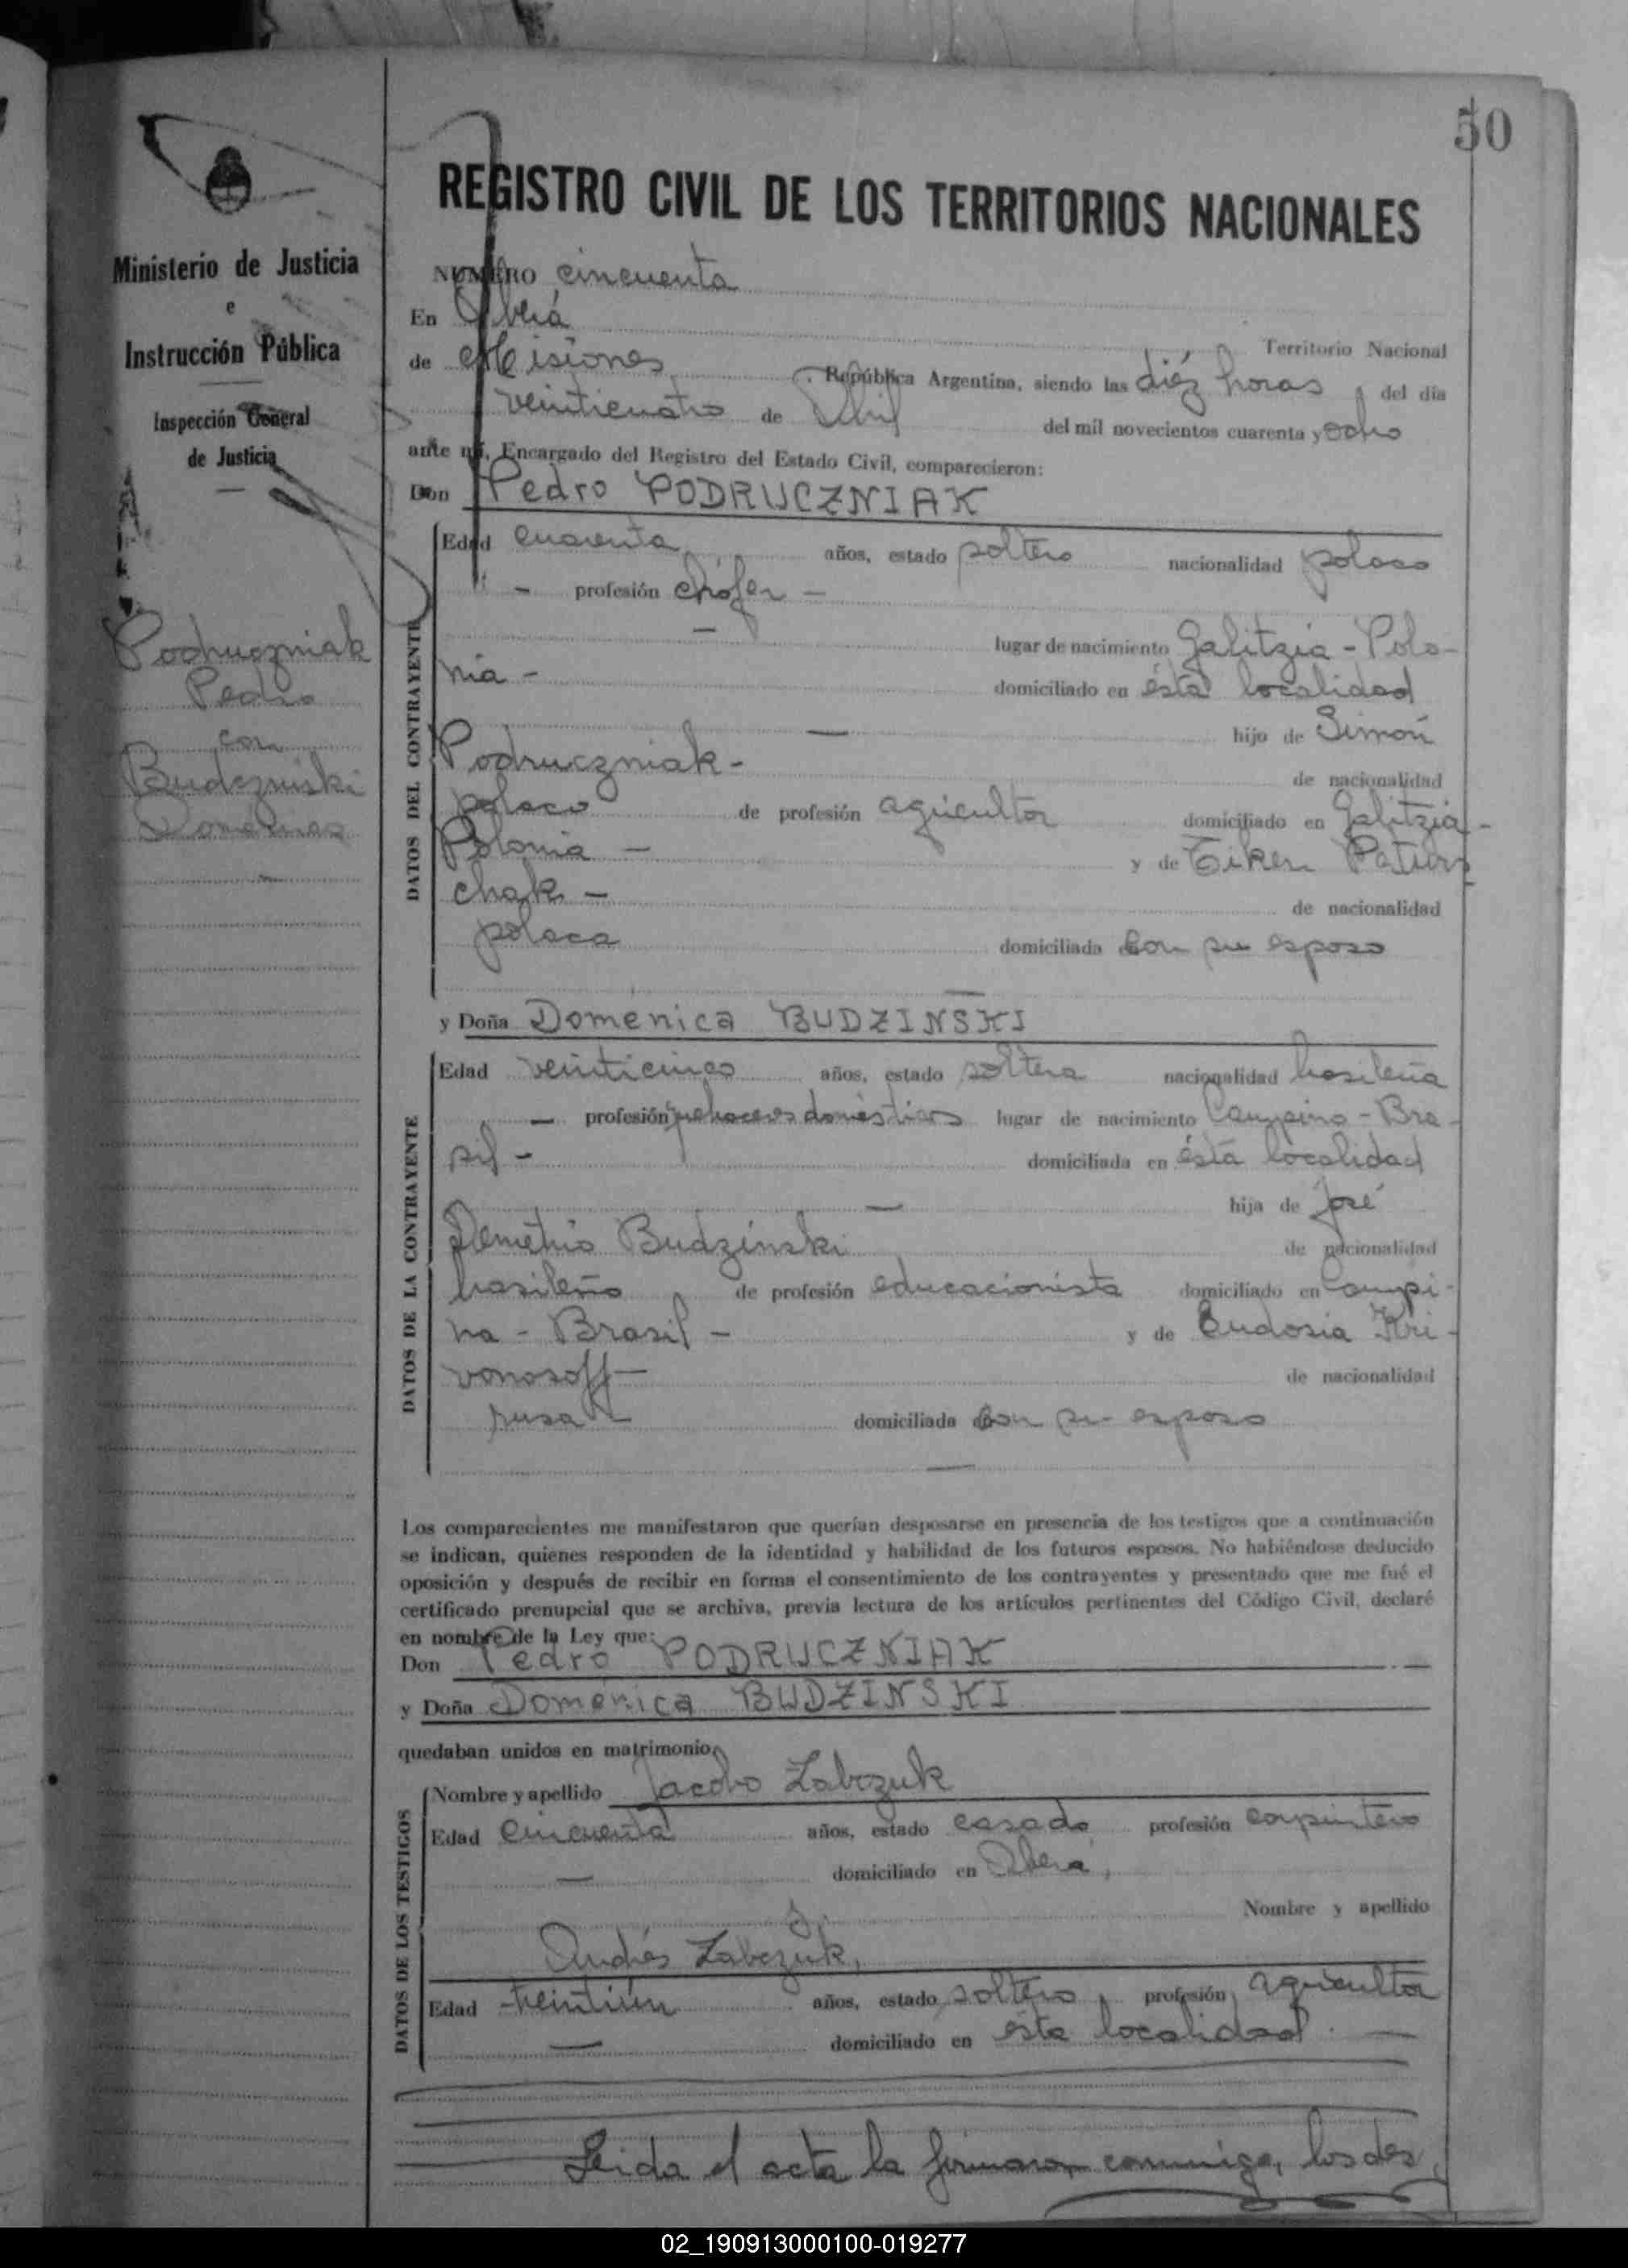 50
Ministerio de Justicia
e
Instrucción Pública
Inspección General
de Justicia
Podruczniak
Pedro
con
Budczniski
Domenica
REGISTRO CIVIL DE LOS TERRITORIOS NACIONALES
NUMERO cincuenta
En Oberá
Territorio Nacional
de Misiones República Argentina, siendo las diéz horas del día
veinticuatro de Abril del mil novecientos cuarenta y ocho
ante mí, Encargado del Registro del Estado Civil, comparecieron:
Don Pedro PODRUCZNIAK
DATOS DEL CONTRAYENTE
Edad cuarenta años, estado soltero nacionalidad polaco
" - profesión chófer -
- lugar de nacimiento Galitzia - Polo-
nia - domiciliado en ésta localidad
- hijo de Simón
Podruczniak - de nacionalidad
polaco de profesión agricultor domiciliado en Galitzia -
Polonia - y de Eiken
chak -
de nacionalidad
polaca domiciliada con su esposo
-
y Doña Domenica BUDZINSKI
DATOS DE LA CONTRAYENTE
Edad veinticinco años, estado soltera nacionalidad brasileña
- profesión quehaceres domésticos lugar de nacimiento Campina - Bra-
sil - domiciliada en ésta localidad
- hija de José
Demetrio Budzinski de nacionalidad
brasileño de profesión educacionista domiciliado en Campi-
na - Brasil - y de Eudosia Kri-
vonosoff - de nacionalidad
rusa domiciliada con su esposo
-
Los comparecientes me manifestaron que querían desposarse en presencia de los testigos que a continuación
se indican, quienes responden de la identidad y habilidad de los futuros esposos. No habiéndose deducido
oposición y después de recibir en forma el consentimiento de los contrayentes y presentado que me fué el
certificado prenupcial que se archiva, previa lectura de los artículos pertinentes del Código Civil, declaré
en nombre de la Ley que:
Don Pedro PODRUCZNIAK
y Doña Domenica BUDZINSKI
quedaban unidos en matrimonio,
DATOS DE LOS TESTIGOS
Nombre y apellido Jacobo Zabczuk
Edad cincuenta años, estado casado profesión carpintero
- domiciliado en Oberá,
y Nombre y apellido
Andrés Zabczuk,
Edad treintiún años, estado soltero, profesión agricultor
- domiciliado en ésta localidad. -
Leida el acta la firmaron conmigo, los des
02_190913000100-019277